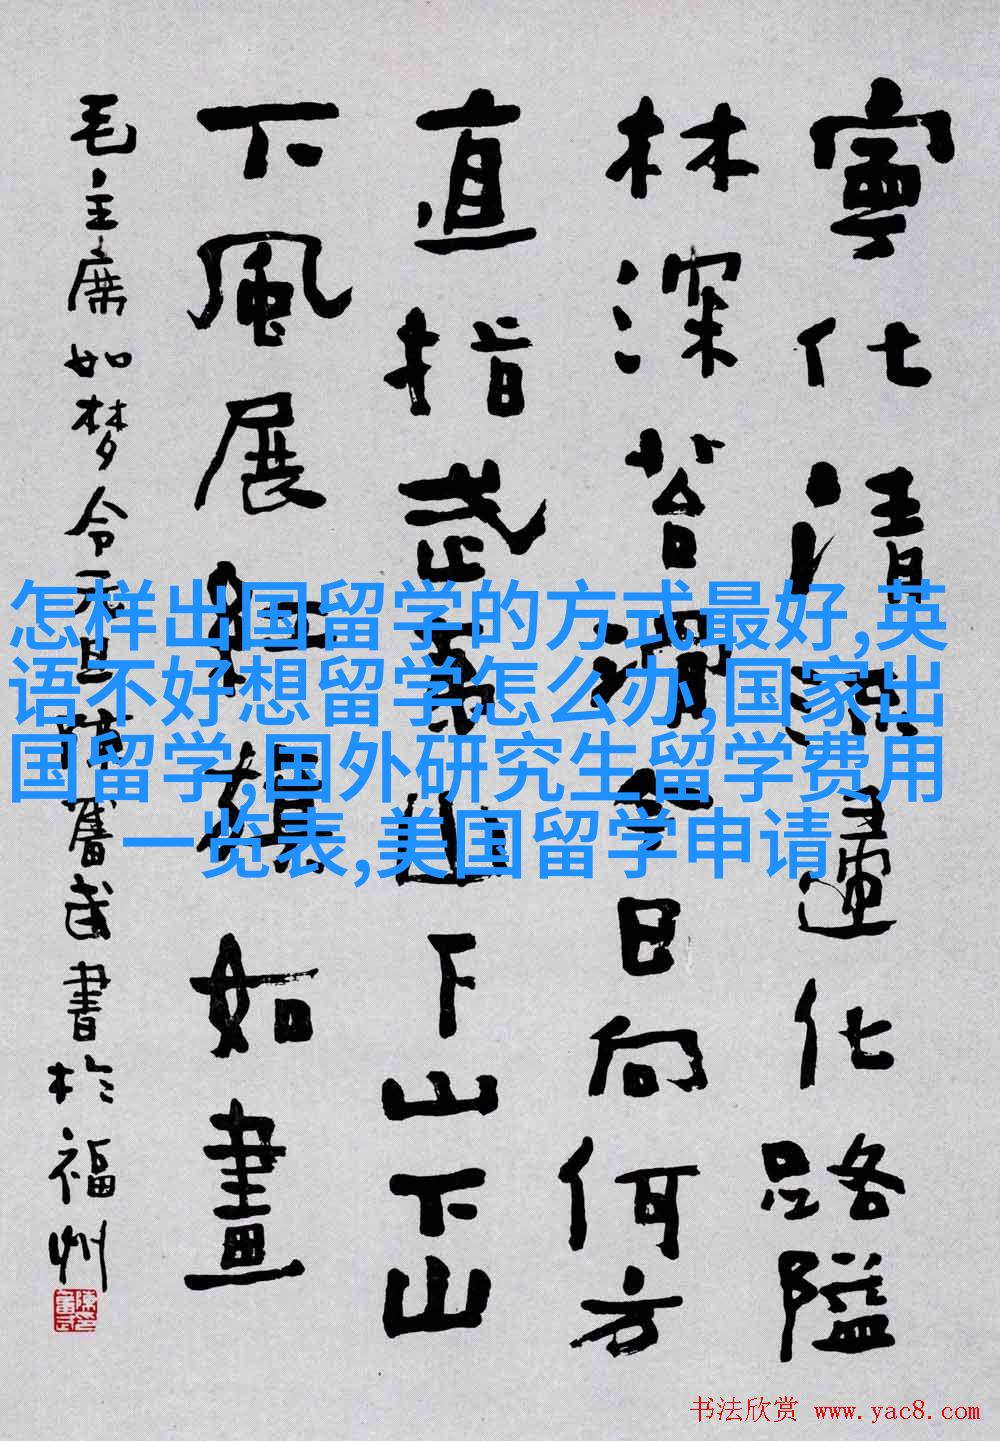 寧化清流歸化路隘
林深苔滑今日向何方
直指武夷山下山下山
下風展紅旗如畫
毛主席如梦令元旦陳奮武書於福州
怎样出国留学的方式最好,英
语不好想留学怎么办,国家出
国留学,国外研究生留学费用
一览表,美国留学申请
书法欣赏 www.yac8.com